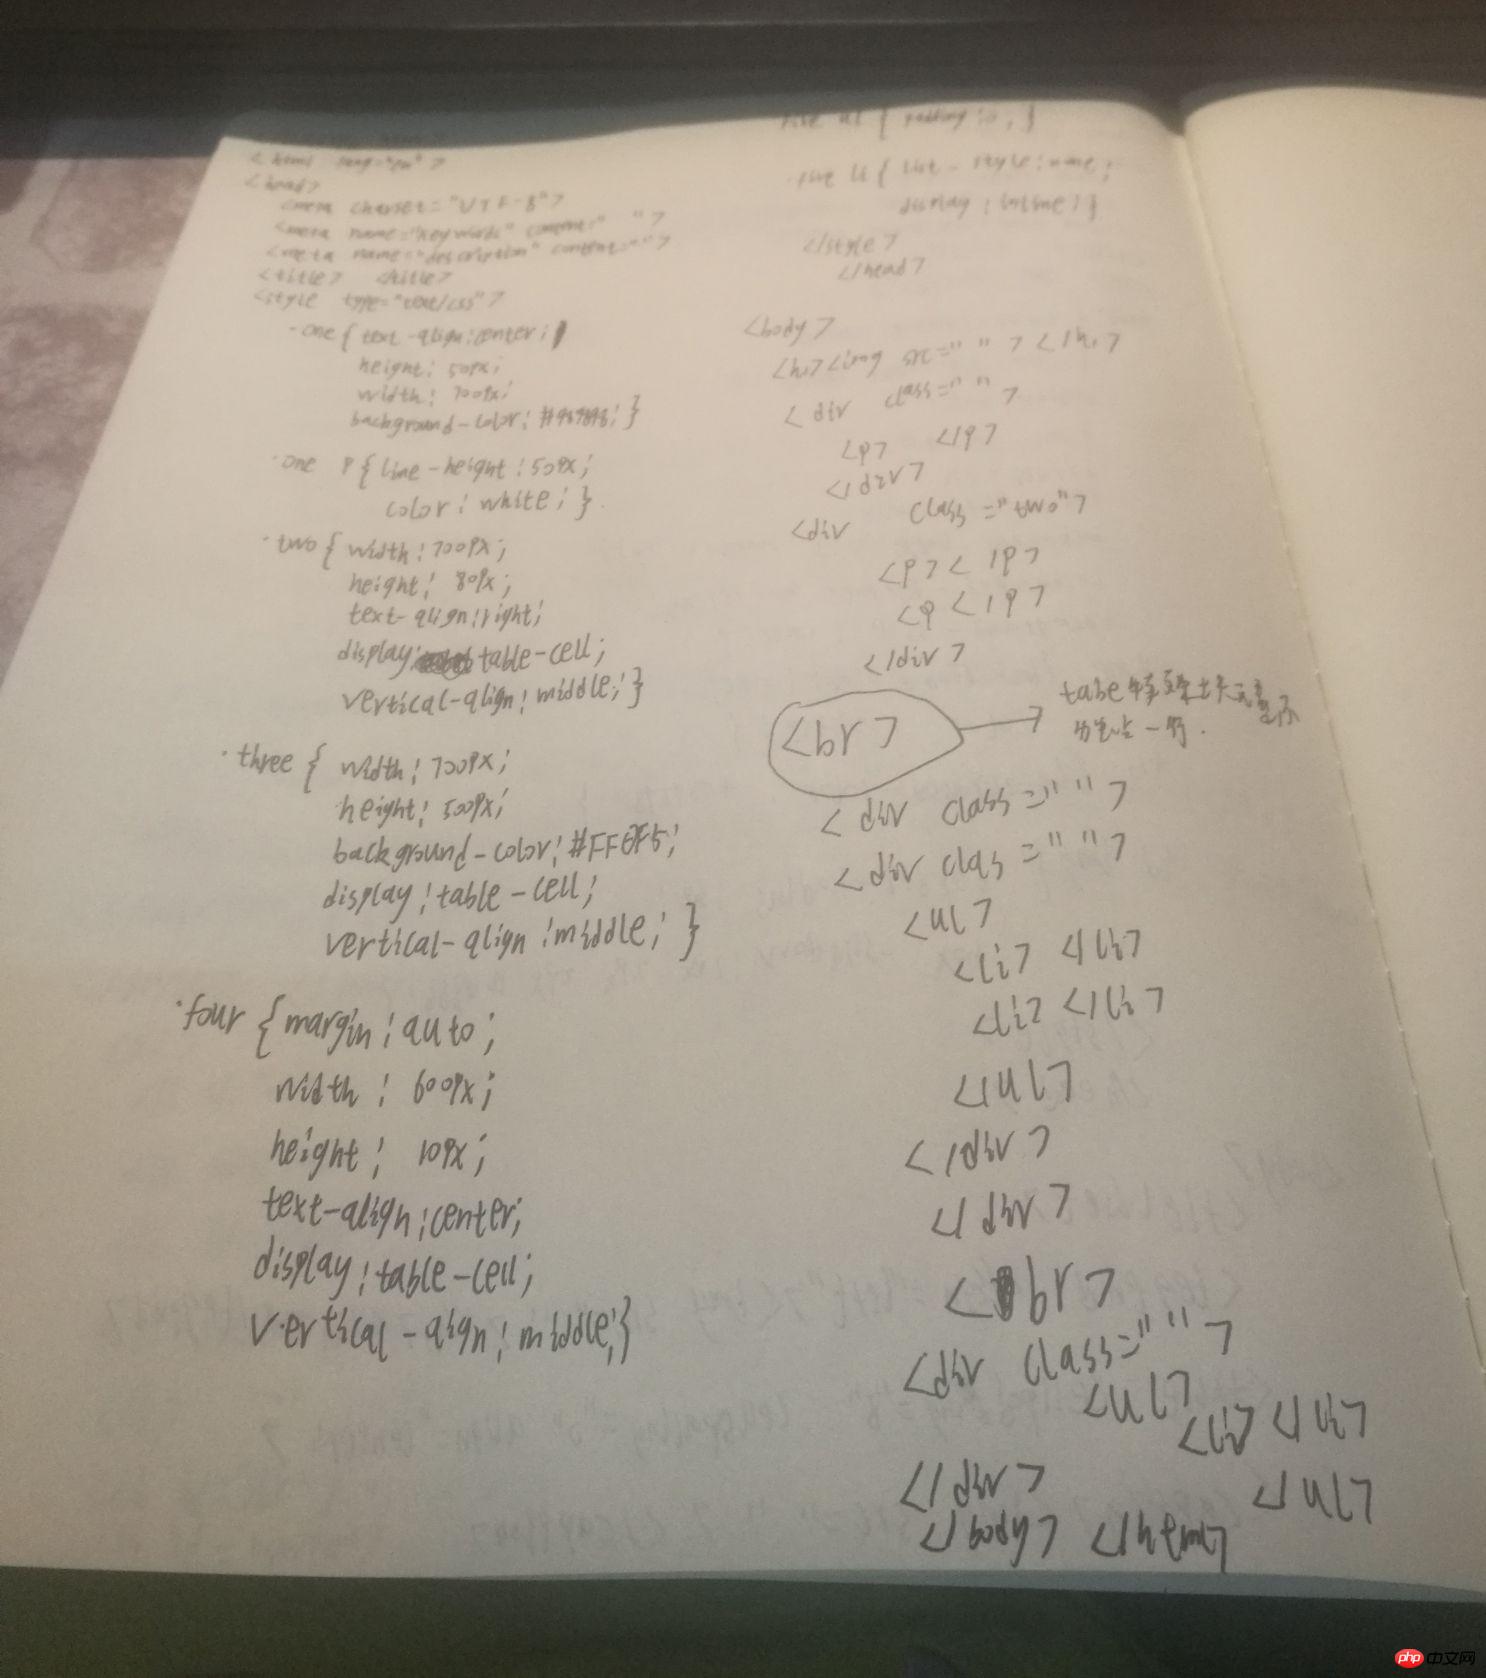 < html lang="en" >
<head>
<meta charset="UTF-8">
<meta name="keywords" content=" ">
<meta name="description" content="">
<title> </title>
<style type="text/css">
.one{text-align:center;
height:50px;
width:700px;
background-color: }
.one P{line-height:50px;
color:white;}
.two{width:700px;
height:80px;
text-align:right;
display:table-cell;
vertical-align:middle;}
.three{width:700px;
height:500px;
background-color:
display:table-cell;
vertical-align:middle;}
.four{margin:auto;
width:600px;
height:10px;
text-align:center;
display:table-cell;
vertical-align:middle;}
ul{padding:0;}
li{list-style:none;
display:inline;}
</style>
</head>
<body>
<h1><img src=" "></h1>
<div class=" ">
<p> </p>
</div>
<div class="two">
<p></p>
<p </p>
</div>
<br>
一行.
<div class=" ">
<div clas=" ">
<ul>
<li> </li>
<li> </li>
</ul>
</div>
</div>
<br>
<div class=" ">
<ul>
<li> </li>
</ul>
</div>
</body> </html>
php中文网